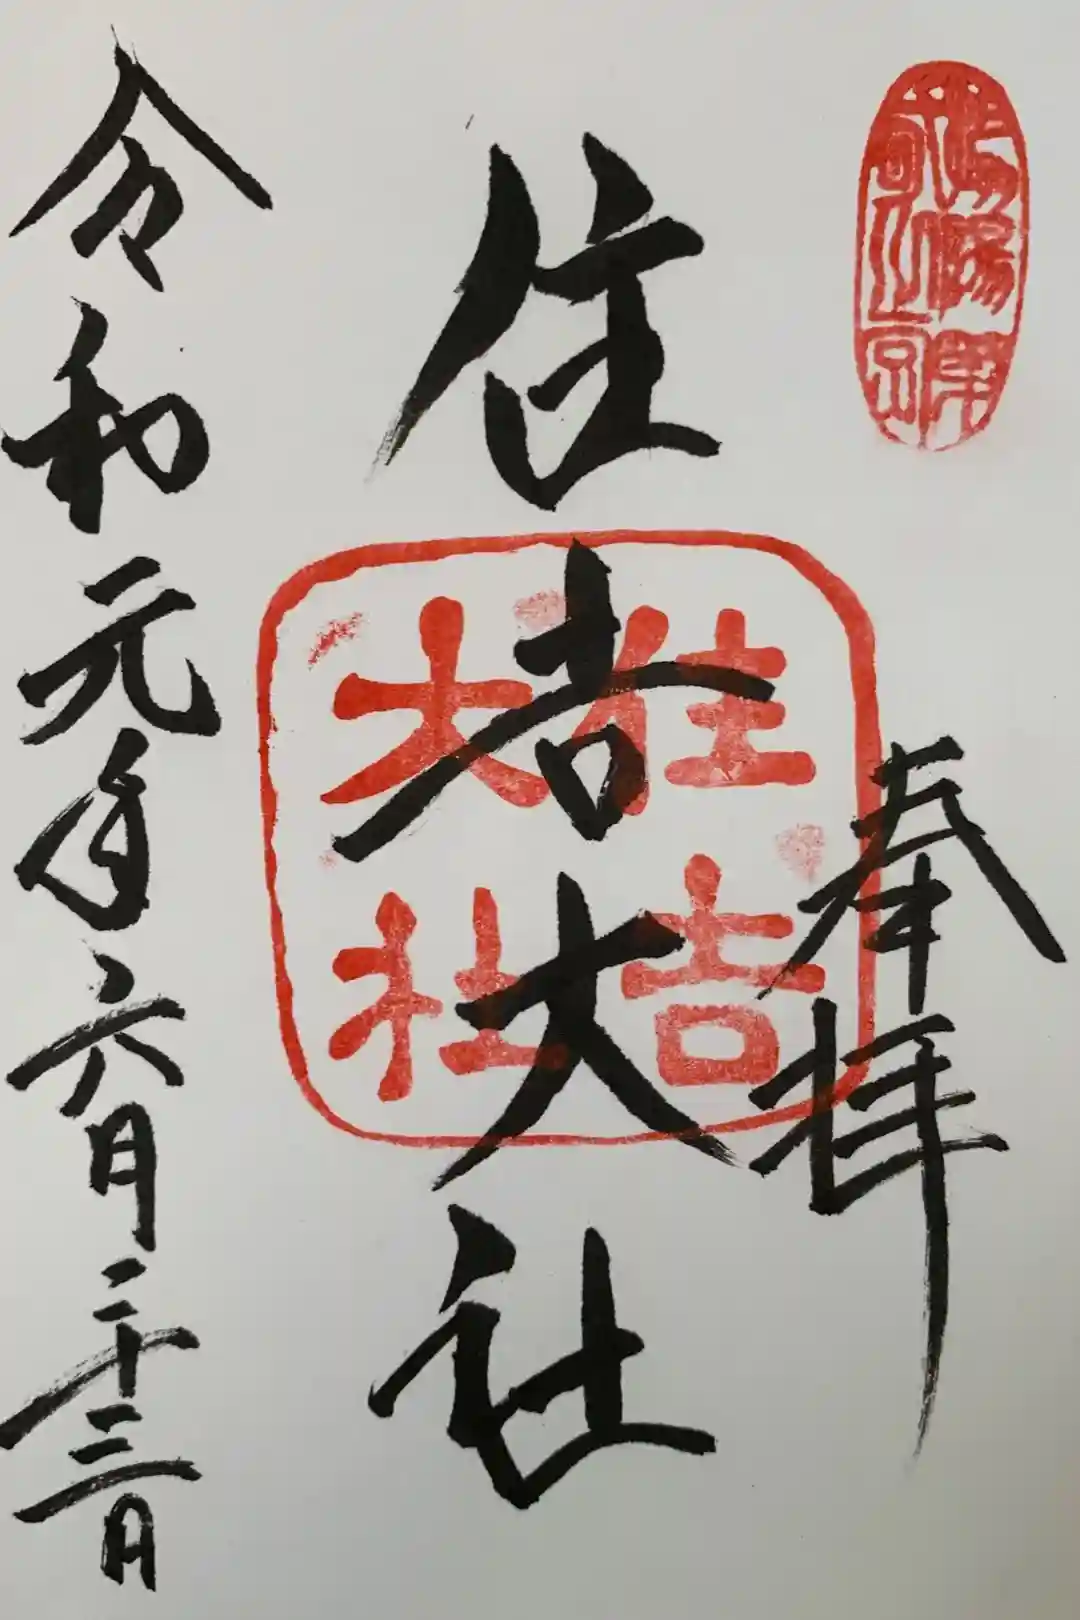 奉拝
住吉大社
住吉
大社
令和元年六月二十三日